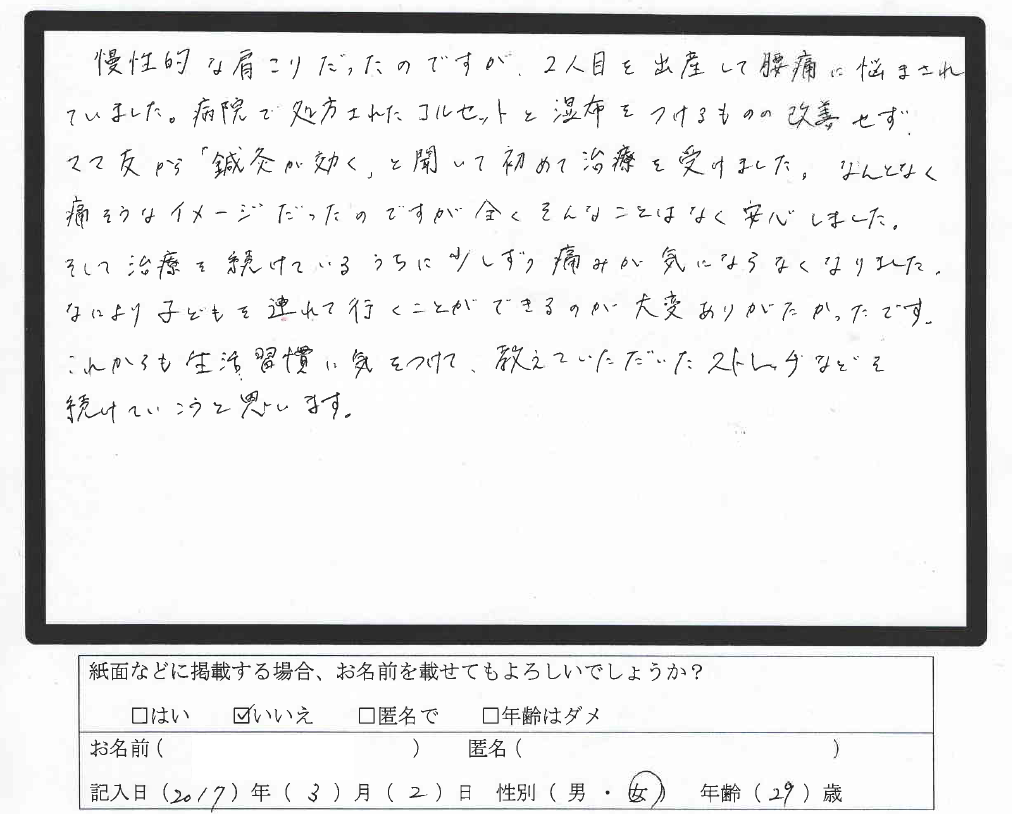 慢性的な肩こりだったのですが、2人目を出産して腰痛に悩まされ
ていました。病院で処方されたコルセットと湿布をつけるものの改善せず、
ママ友から「鍼灸が効く」と聞いて初めて治療を受けました。なんとなく
痛そうなイメージだったのですが全くそんなことはなく安心しました。
そして治療を続けているうちに少しずつ痛みが気にならなくなりました。
なにより子どもを連れて行くことができるのが大変ありがたかったです。
これからも生活習慣に気をつけて、教えていただいたストレッチなどを
続けていこうと思います。
紙面などに掲載する場合、お名前を載せてもよろしいでしょうか？
□はい ☑いいえ □匿名で □年齢はダメ
お名前( ) 匿名( )
記入日(2017)年(3)月(2)日 性別(男・女) 年齢(29)歳